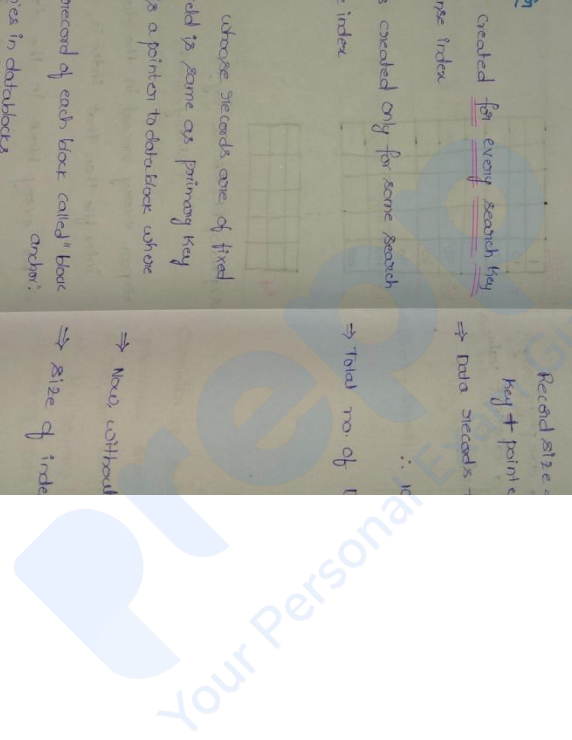 created for every search key
nse index
s created only for some search
e index
whoose records are of fixed
eld is same as primary key
s a pointer to data block where
record of each block called "block
anchor".
es in datablocks
Record size
key + point
⇒ Data records
∴
⇒ Total no. of
⇒ Now, without
⇒ size of inde
prepp
Your Personal Exam Gu